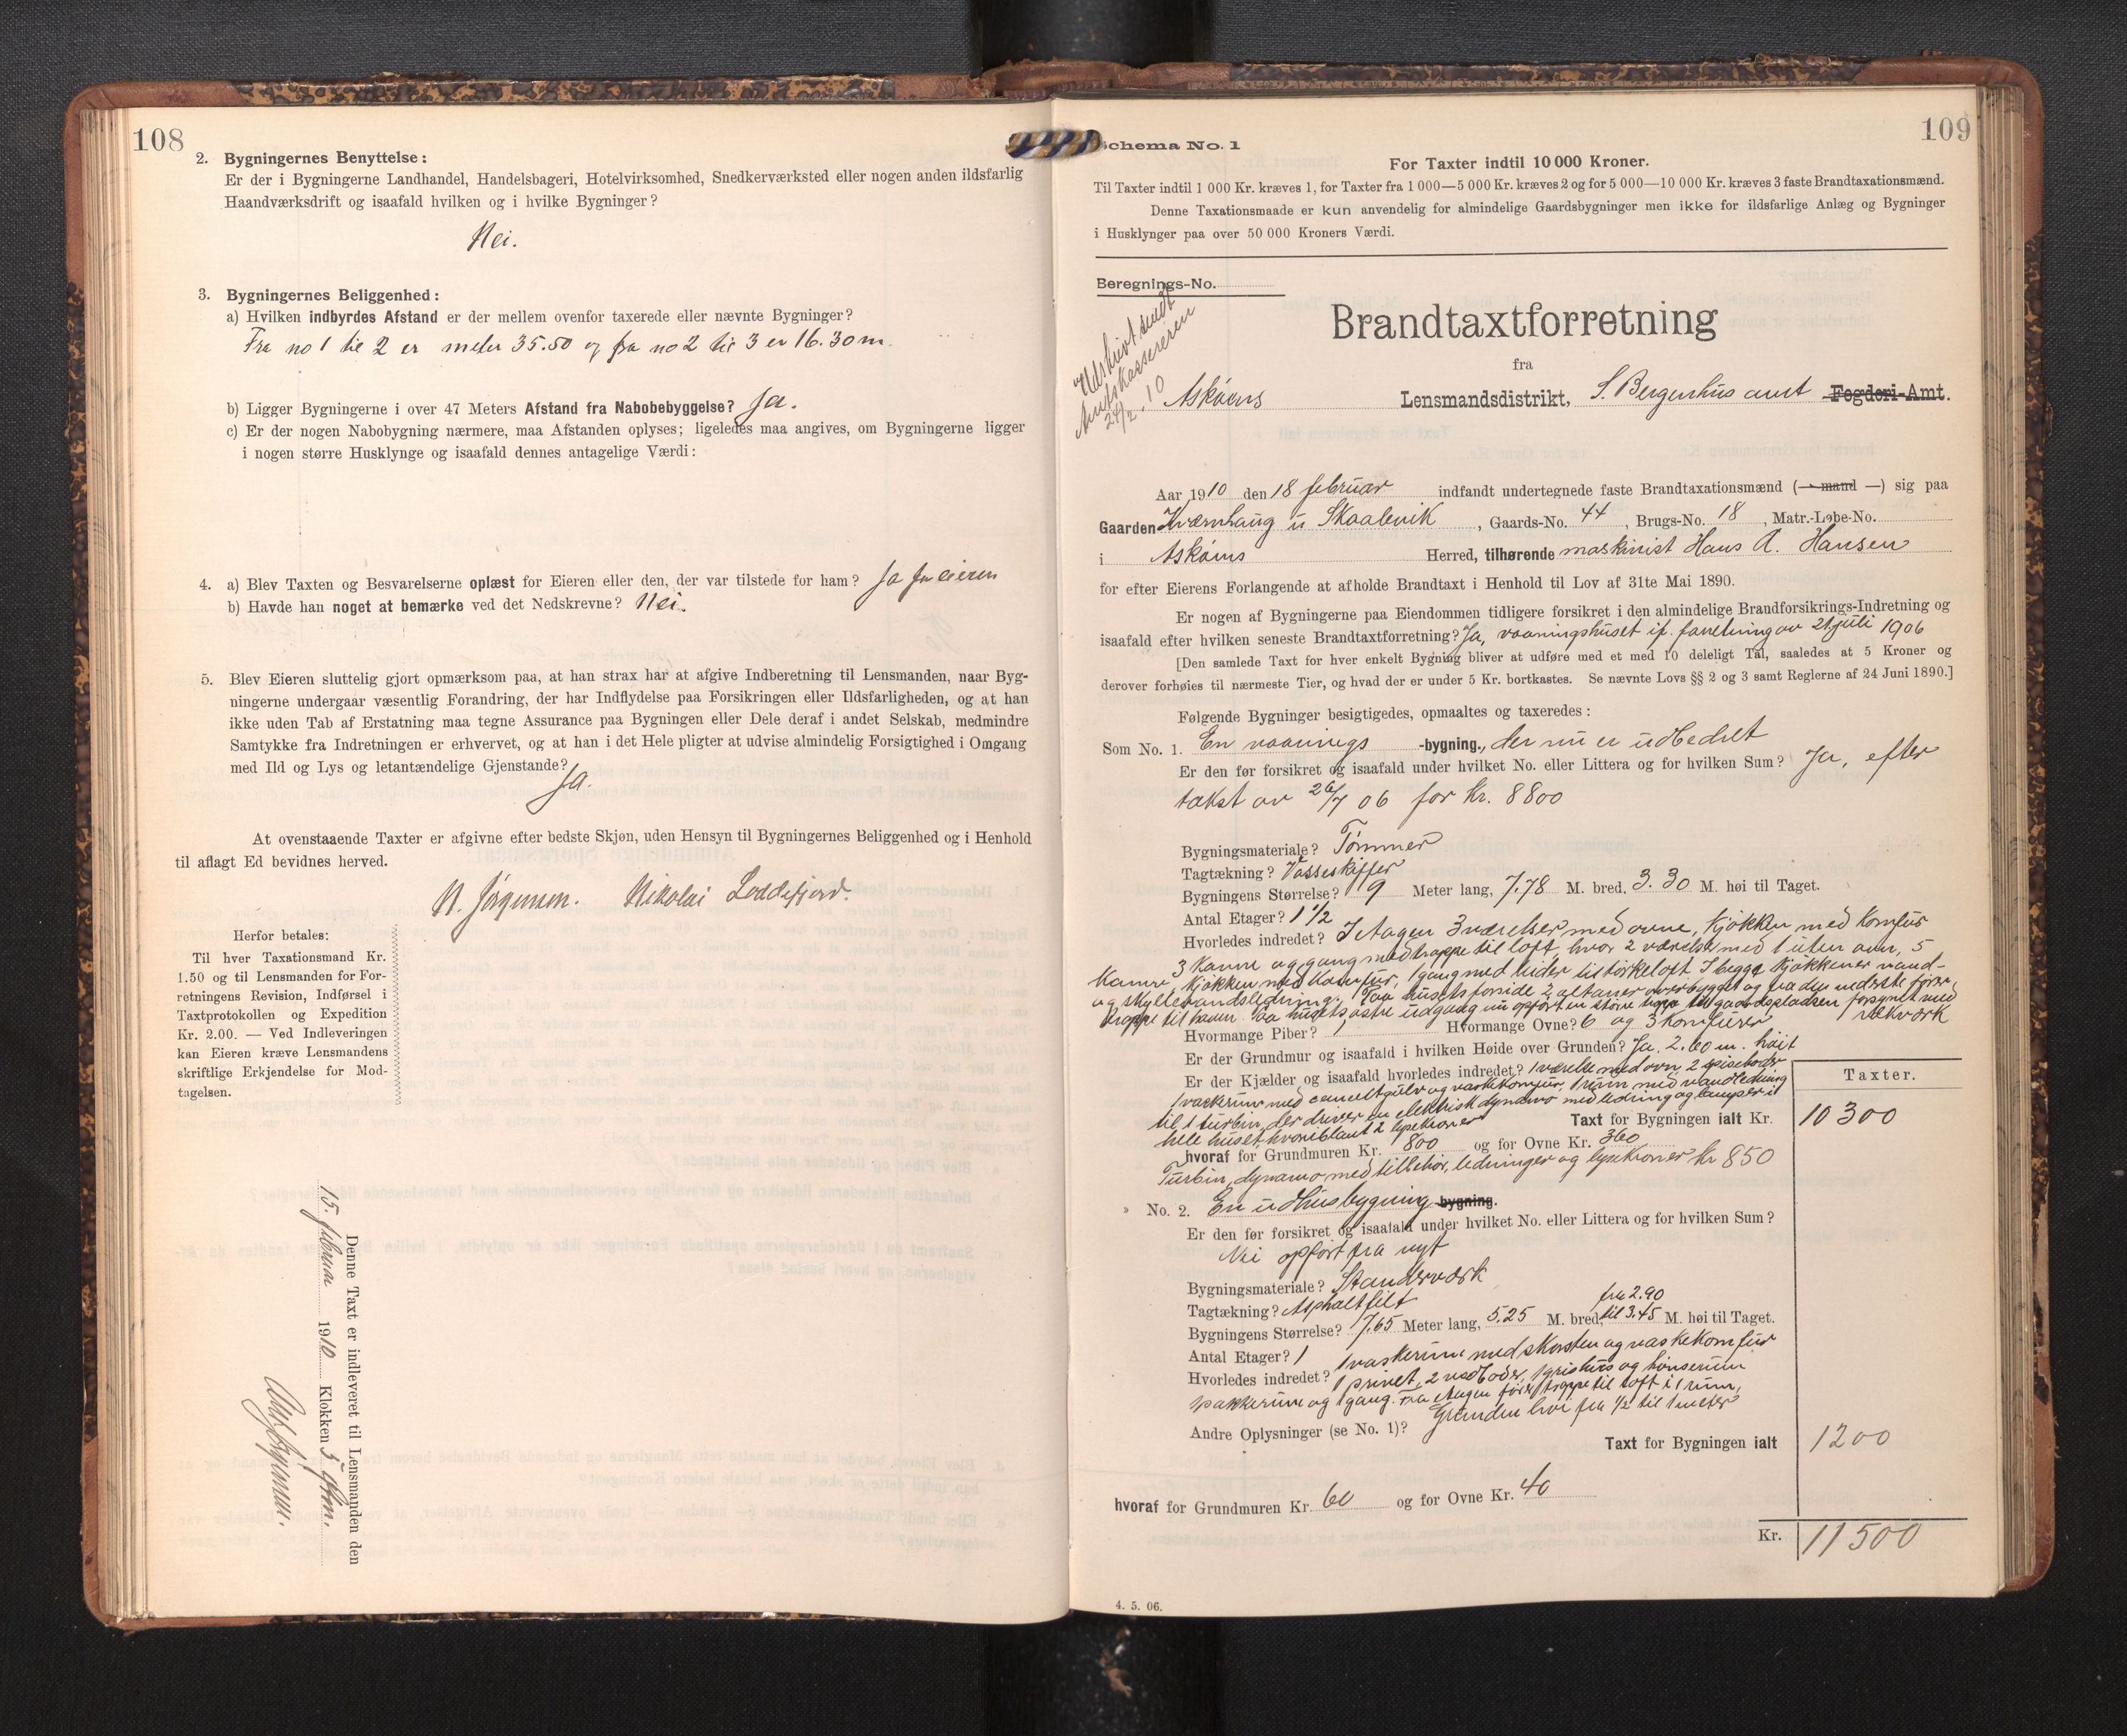 108
2. Bygningernes Benyttelse:
Er der i Bygningerne Landhandel, Handelsbageri, Hotelvirksomhed, Snedkerværksted eller nogen anden ildsfarlig
Haandværksdrift og isaafald hvilken og i hvilke Bygninger?
Nei.
3. Bygningernes Beliggenhed:
a) Hvilken indbyrdes Afstand er der mellem ovenfor taxerede eller nævnte Bygninger?
Fra no 1 til 2 er meter 35.50 og fra no 2 til 3 er 16.30 m.
b) Ligger Bygningerne i over 47 Meters Afstand fra Nabobebyggelse? Ja.
c) Er der nogen Nabobygning nærmere, maa Afstanden oplyses; ligeledes maa angives, om Bygningerne ligger
i nogen større Husklynge og isaafald dennes antagelige Værdi:
4. a) Blev Taxten og Besvarelserne oplæst for Eieren eller den, der var tilstede for ham? Ja for eieren
b) Havde han noget at bemærke ved det Nedskrevne? Nei.
5. Blev Eieren sluttelig gjort opmærksom paa, at han strax har at afgive Indberetning til Lensmanden, naar Byg-
ningerne undergaar væsentlig Forandring, der har Indflydelse paa Forsikringen eller Ildsfarligheden, og at han
ikke uden Tab af Erstatning maa tegne Assurance paa Bygningen eller Dele deraf i andet Selskab, medmindre
Samtykke fra Indretningen er erhvervet, og at han i det Hele pligter at udvise almindelig Forsigtighed i Omgang
med Ild og Lys og letantændelige Gjenstande?
Ja.
At ovenstaaende Taxter er afgivne efter bedste Skjøn, uden Hensyn til Bygningernes Beliggenhed og i Henhold
til aflagt Ed bevidnes herved.
N. Jörgensen. Nikolai Loddefjord.
Herfor betales:
Til hver Taxationsmand Kr.
1.50 og til Lensmanden for For-
retningens Revision, Indførsel i
Taxtprotokollen og Expedition
Kr. 2.00. — Ved Indleveringen
kan Eieren kræve Lensmandens
skriftlige Erkjendelse for Mod-
tagelsen.
Denne Taxt er indleveret til Lensmanden den
15. februar 1910 Klokken 5 eftm.
109
Schema No. 1
For Taxter indtil 10 000 Kroner.
Til Taxter indtil 1 000 Kr. kræves 1, for Taxter fra 1 000—5 000 Kr. kræves 2 og for 5 000—10 000 Kr. kræves 3 faste Brandtaxationsmænd.
Denne Taxationsmaade er kun anvendelig for almindelige Gaardsbygninger men ikke for ildsfarlige Anlæg og Bygninger
i Husklynger paa over 50 000 Kroners Værdi.
Beregnings-No.
Udskrivt sendt
Amtskassereren
24/2. 10
Brandtaxtforretning
fra
Askøens Lensmandsdistrikt, S. Bergenhus amt Fogderi-Amt.
Aar 1910 den 18 februar indfandt undertegnede faste Brandtaxationsmænd (— mand —) sig paa
Gaarden Kværnhaug u Skaalevik, Gaards-No. 44, Brugs-No. 18, Matr.-Løbe-No.
i Askøens Herred, tilhørende maskinist Hans A. Hansen
for efter Eierens Forlangende at afholde Brandtaxt i Henhold til Lov af 31te Mai 1890.
Er nogen af Bygningerne paa Eiendommen tidligere forsikret i den almindelige Brandforsikrings-Indretning og
isaafald efter hvilken seneste Brandtaxtforretning? Ja, vaaningshuset if. forretning av 21 juli 1906
[Den samlede Taxt for hver enkelt Bygning bliver at udføre med et med 10 deleligt Tal, saaledes at 5 Kroner og
derover forhøies til nærmeste Tier, og hvad der er under 5 Kr. bortkastes. Se nævnte Lovs §§ 2 og 3 samt Reglerne af 24 Juni 1890.]
Følgende Bygninger besigtigedes, opmaaltes og taxeredes:
Som No. 1. En vaanings -bygning., der nu er udbedret
Er den før forsikret og isaafald under hvilket No. eller Littera og for hvilken Sum? Ja, efter
takst av 26/7 06 for Kr. 8800
Bygningsmateriale? Tømmer
Tagtækning? Vosseskiffer
Bygningens Størrelse? 9 Meter lang, 7.78 M. bred, 3.30 M. høi til Taget.
Antal Etager? 1 1/2
Hvorledes indredet? I etagen 3 værelser med ovne, kjøkken med komfur
3 kamre og gang med trappe til loft, hvor 2 værelse med 1 uten ovn, 5
kamre, kjøkken med komfur, 1 gang med leider til tørkeloft. I begge kjøkkener vand-
og skyllevandsledning. Paa husets forside 2 altaner overbygget og fra den nederste fører
trappe til haven. Paa husets østre udgang nu opført en større trappe til gaardspladsen forsynet med
rækværk
Hvormange Piber? 1 Hvormange Ovne? 6 og 3 komfurer
Er der Grundmur og isaafald i hvilken Høide over Grunden? Ja. 2.60 m. høit
Er der Kjælder og isaafald hvorledes indredet? 1 værelse med ovn, 2 spiseboder
1 vaskerum med cementgulv og vaskekomfur, 1 rum med vandledning
til 1 turbin, der driver en elektrisk dynamo med ledning og lamper i
hele huset, hvoriblant 2 lysekroner
Taxt for Bygningen ialt Kr.
Taxter.
10300
hvoraf for Grundmuren Kr. 800 og for Ovne Kr. 360
Turbin, dynamo med tilbehør, ledninger og lysekroner kr 850
» No. 2. En udhusbygning bygning.
Er den før forsikret og isaafald under hvilket No. eller Littera og for hvilken Sum?
Nei opført fra nyt
Bygningsmateriale? Standerværk
Tagtækning? Asphaltfilt
fra 2.90
Bygningens Størrelse? 7.65 Meter lang, 5.25 M. bred, til 3.45 M. høi til Taget.
Antal Etager? 1 1 vaskerum med skorsten og vaskekomfur
Hvorledes indredet? 1 privet, 2 vedboder, 1 grishus og hønserum
1 pakkerum og 1 gang. Fra etagen fører trappe til loft i 1 rum,
Grunden høi fra 1/2 til 1 meter
Andre Oplysninger (se No. 1)?
Taxt for Bygningen ialt 1200
hvoraf for Grundmuren Kr. 60 og for Ovne Kr. 40
Kr. 11500
4. 5. 06.